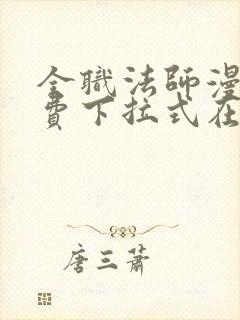 全職法師漫
費下拉式在
唐三蕭